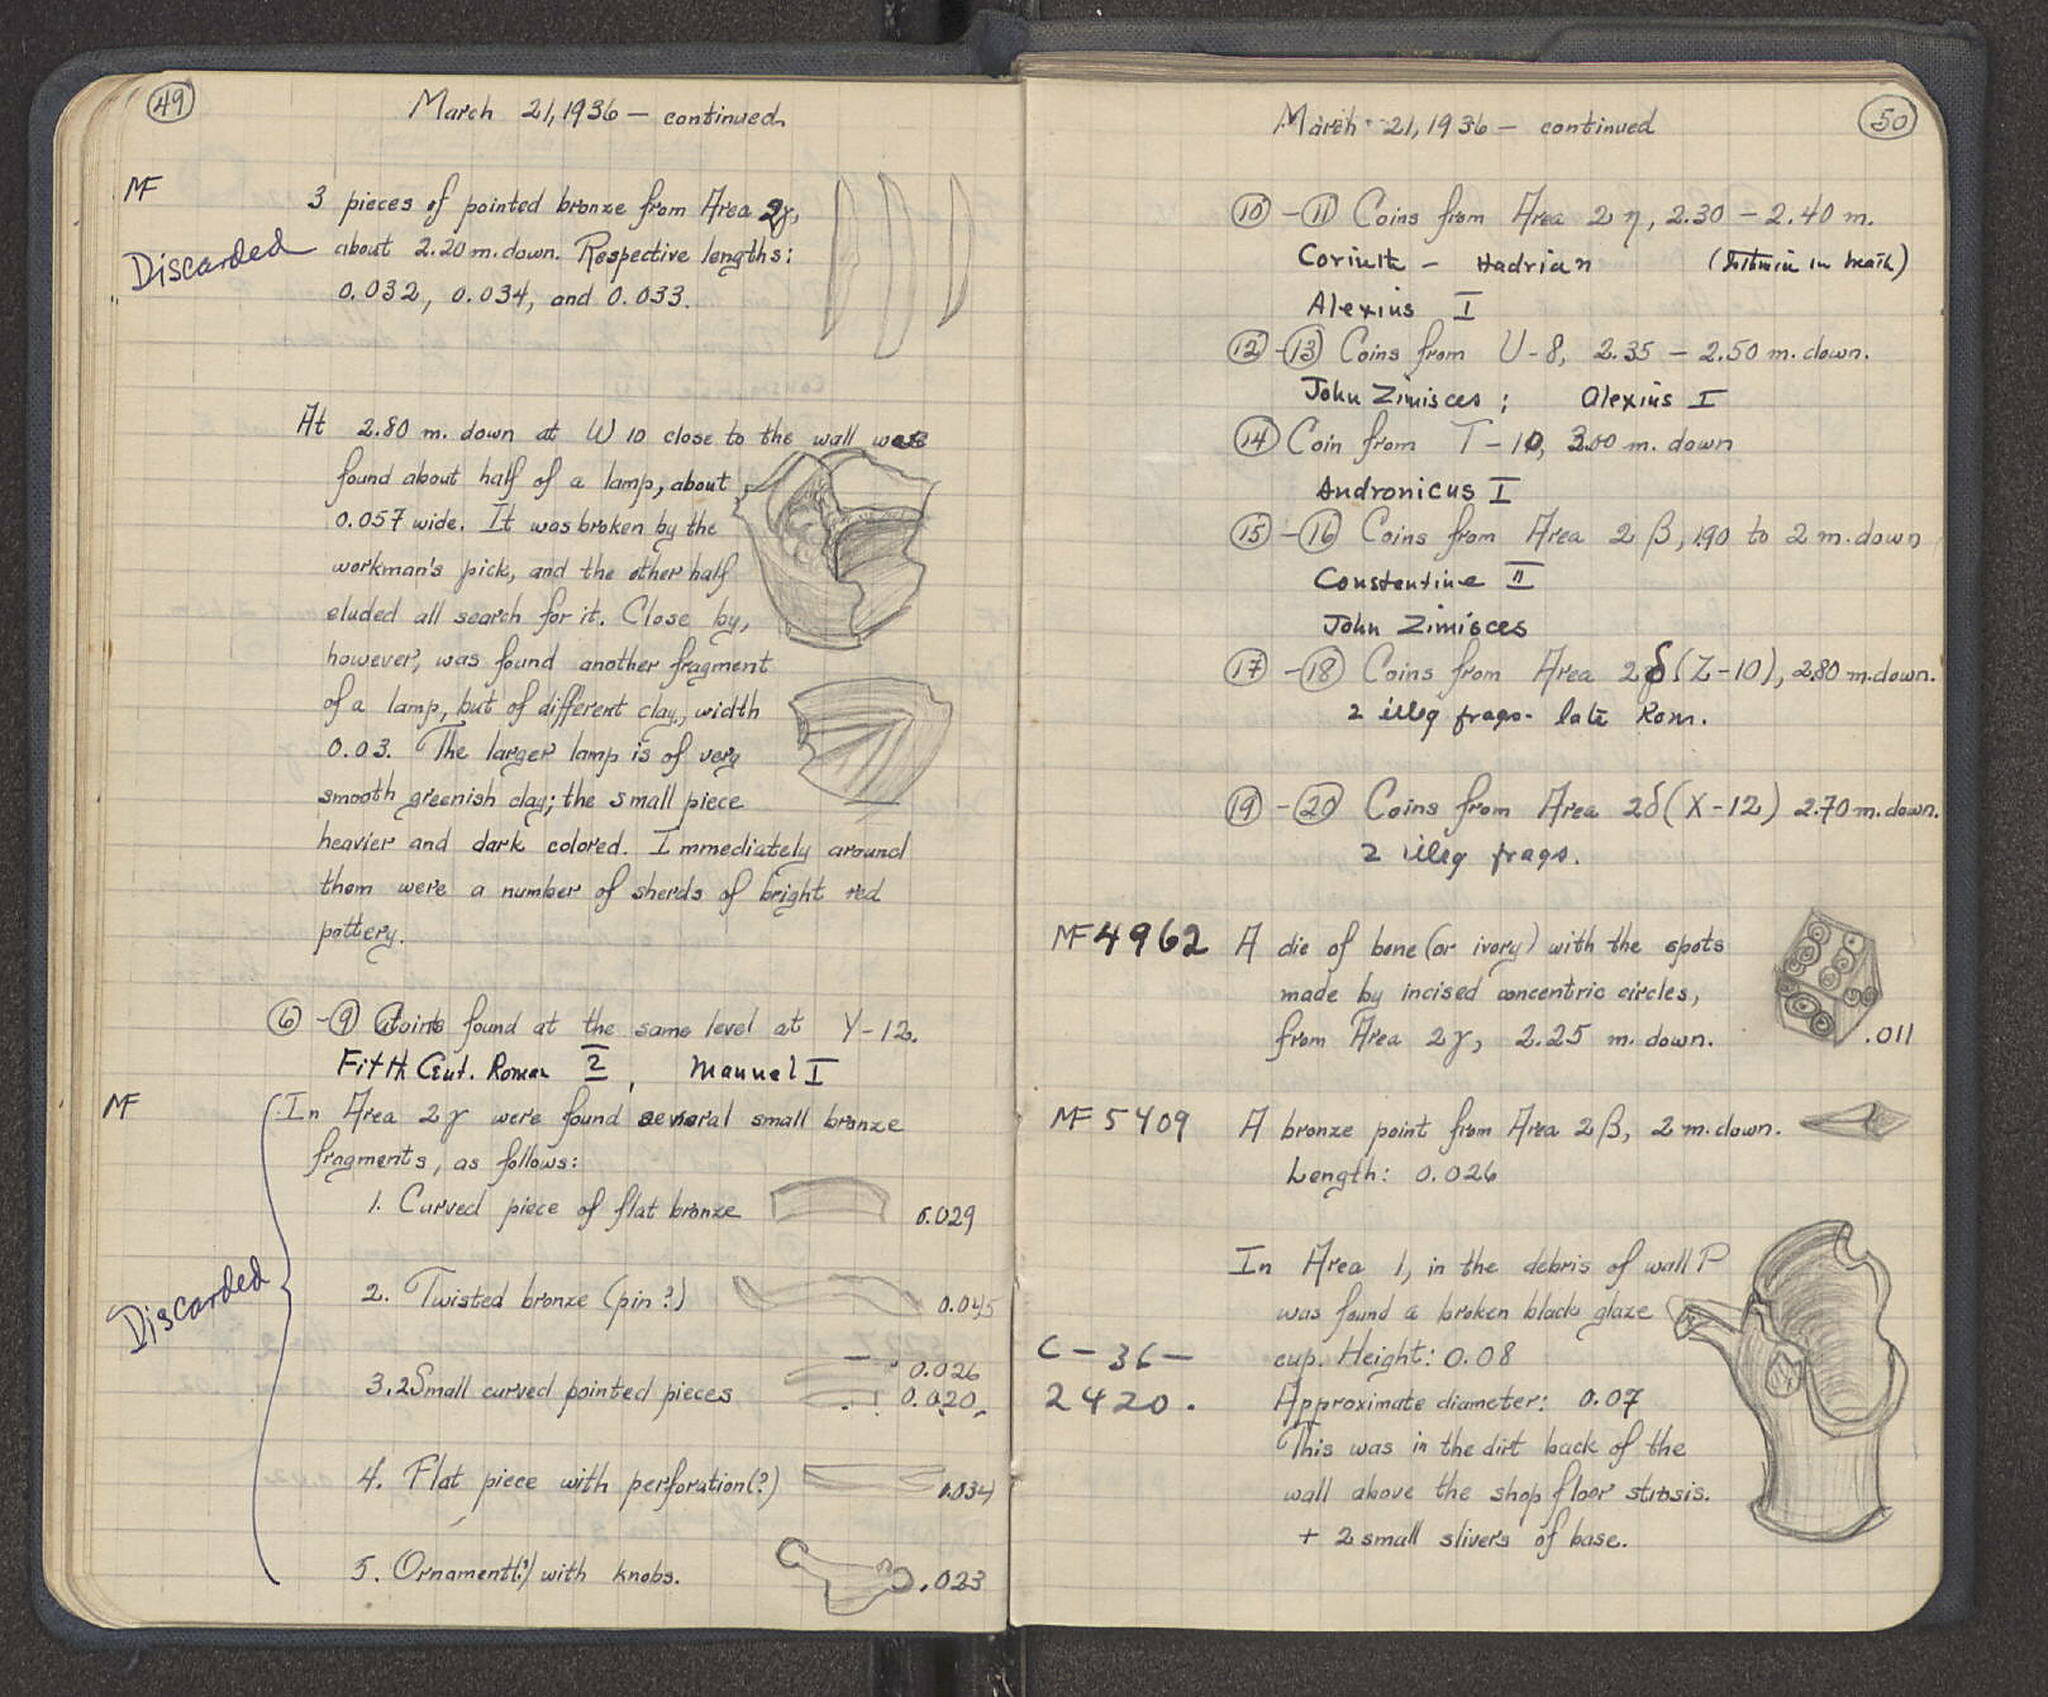 49
March 21, 1936 — continued.
MF
3 pieces of pointed bronze from Area 2γ,
Discarded
about 2.20 m. down. Respective lengths:
0.032, 0.034, and 0.033.
At 2.80 m. down at W 10 close to the wall was
found about half of a lamp, about
0.057 wide. It was broken by the
workman's pick, and the other half
eluded all search for it. Close by,
however, was found another fragment
of a lamp, but of different clay, width
0.03. The larger lamp is of very
smooth greenish clay; the small piece
heavier and dark colored. Immediately around
them were a number of sherds of bright red
pottery.
6 - 9 Coins found at the same level at Y-12.
Fifth Cent. Roman 2, Manuel I
MF
In Area 2γ were found several small bronze
fragments, as follows:
1. Curved piece of flat bronze 0.029
Discarded
2. Twisted bronze (pin?) 0.045
3. 2 Small curved pointed pieces 0.026
0.020
4. Flat piece with perforation(?) 0.034
5. Ornament(?) with knobs. .023
March 21, 1936 — continued
50
10 - 11 Coins from Area 2 η, 2.30 - 2.40 m.
Corinth - Hadrian (Isthmia in wreath)
Alexius I
12 - 13 Coins from U-8, 2.35 - 2.50 m. down.
John Zimisces ; Alexius I
14 Coin from T-10, 3.00 m. down
Andronicus I
15 - 16 Coins from Area 2 β, 1.90 to 2 m. down
Constantine II
John Zimisces
17 - 18 Coins from Area 2δ (Z-10), 2.80 m. down.
2 illeg frags. late Rom.
19 - 20 Coins from Area 2δ (X-12) 2.70 m. down.
2 illeg frags.
MF 4962 A die of bone (or ivory) with the spots
made by incised concentric circles,
from Area 2γ, 2.25 m. down.
.011
MF 5409 A bronze point from Area 2β, 2 m. down.
Length: 0.026
In Area 1, in the debris of wall P
was found a broken black glaze
C - 36 - cup. Height: 0.08
2420. Approximate diameter: 0.07
This was in the dirt back of the
wall above the shop floor stosis.
+ 2 small slivers of base.